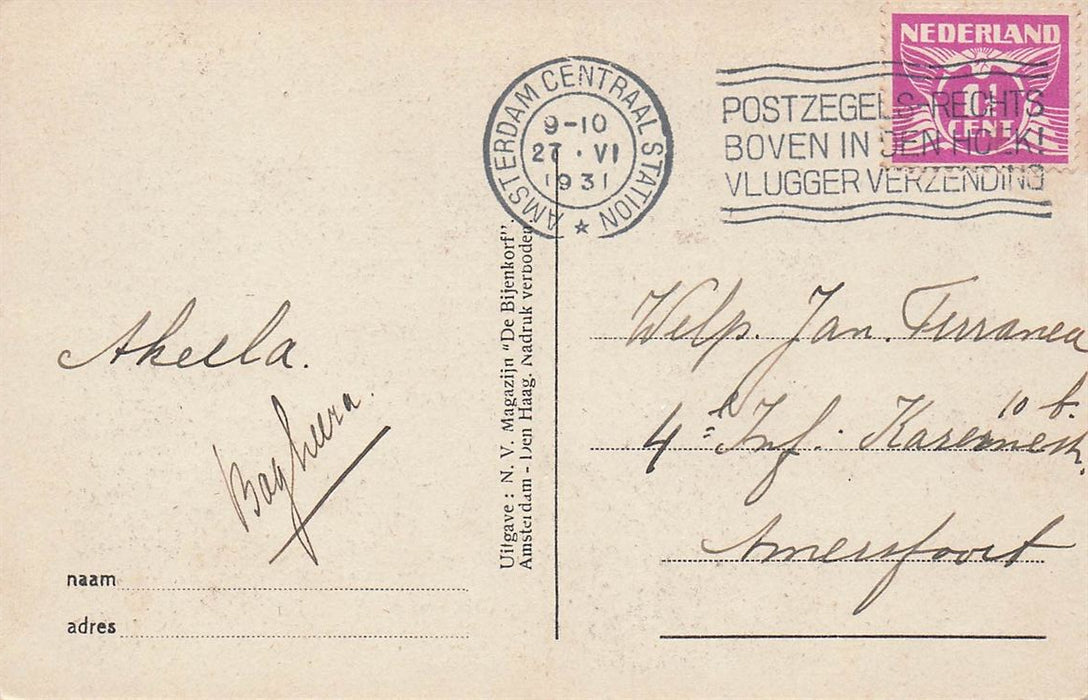 NEDERLAND
1½
CENT
AMSTERDAM CENTRAAL STATION
9-10
27 · VI
1931
POSTZEGELS-RECHTS
BOVEN IN DEN HOEK!
VLUGGER VERZENDING
Akeela.
Bagheera.
naam
adres
Uitgave : N. V. Magazijn "De Bijenkorf".
Amsterdam - Den Haag. Nadruk verboden
Welp. Jan.
4e Inf. 10 b.
Amersfoort